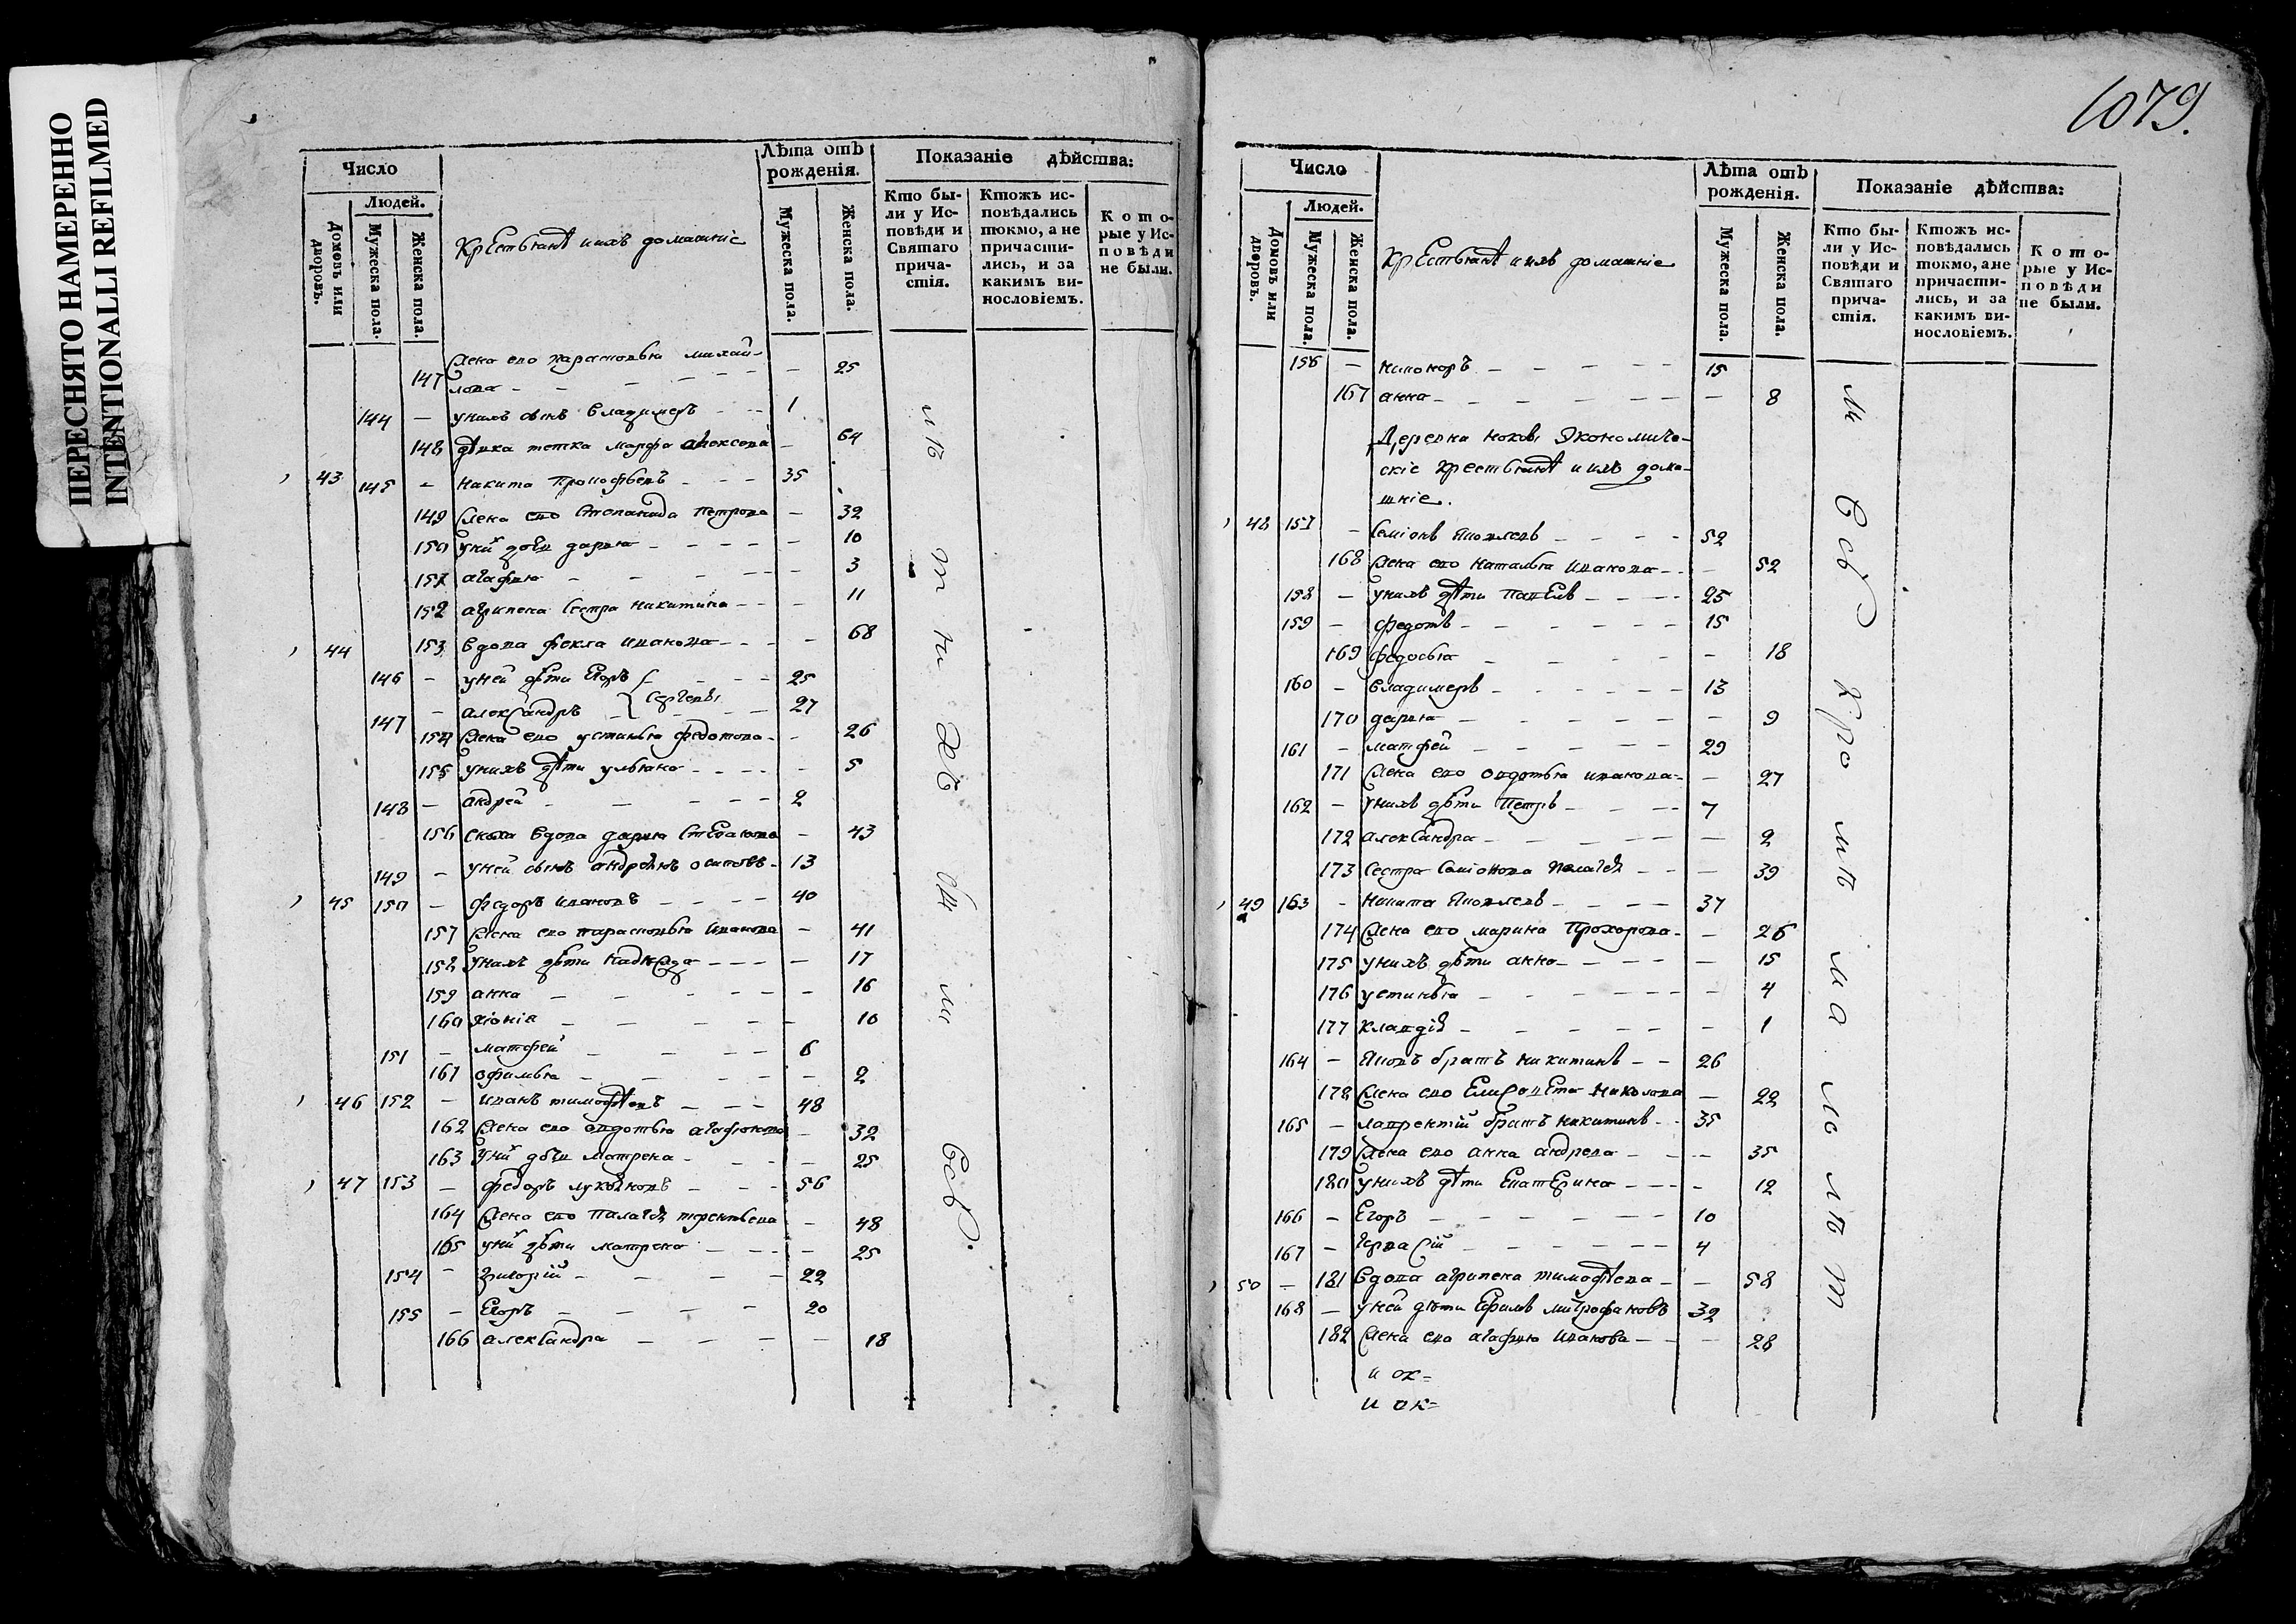 ПЕРЕСНЯТО НАМЕРЕННО
INTENTIONALLI REFILMED
Число
Людей.
Домовъ или дворовъ.
Мужеска пола.
Женска пола.
Крестьянѣ и ихъ домашніе
Лѣта отъ рожденія.
Мужеска пола.
Женска пола.
Показаніе дѣйства:
Кто были у Исповѣди и Святаго причастія.
Ктожъ исповѣдались токмо, а не причастились, и за какимъ винословіемъ.
Которые у Исповѣди не были.
147 Жена ево парасковья михай- — 25
лова
144 — у нихъ сынъ владимеръ 1
148 дѣвка тетка марфа алексева — 64
43 145 — никита Прокофьевъ 35
149 Жена ево Степанида петрова — 32
150 у ниⷯ дочь дарья — 10
151 агафья — 3
152 агрипена сестра никитина — 11
44 153 вдова фекла иванова — 68
146 — у ней дѣти Егоръ 25
Сергеевы
147 — александръ 27
154 Жена ево устинья федотова — 26
155 у нихъ дѣти ульяна — 5
148 — андрей 2
156 сноха вдова дарья степанова — 43
149 — у ней сынъ андреянъ осиповъ 13
45 150 — федоръ ивановъ 40
157 Жена ево парасковья иванова — 41
158 у нихъ дѣти надежда — 17
159 анна — 16
160 хіонія — 10
151 — матфей 6
161 офимья — 2
46 152 — иванъ тимофѣевъ 48
162 Жена ево овдотья агафонова — 32
163 у ниⷯ дочь матрена — 25
47 153 — федоръ лукояновъ 56
164 Жена ево Палагѣя терентьева — 48
165 у ниⷯ дѣти матрена — 25
154 — григорій 22
155 — Егоръ 20
166 александра — 18
въ
1079.
Число
Людей.
Домовъ или дворовъ.
Мужеска пола.
Женска пола.
Крестьянѣ и ихъ домашніе
Лѣта отъ рожденія.
Мужеска пола.
Женска пола.
Показаніе дѣйства:
Кто были у Исповѣди и Святаго причастія.
Ктожъ исповѣдались токмо, а не причастились, и за какимъ винословіемъ.
Которые у Исповѣди не были.
156 — никоноръ 15
167 анна — 8
Деревни Экономиче-
скіе крестьянѣ и ихъ дома-
шніе.
48 157 — Семіонъ Яковлевъ 52
168 Жена ево наталья иванова — 52
158 — у нихъ дѣти Павелъ 25
159 — федотъ 15
169 федосья — 18
160 — владимеръ 13
170 дарья — 9
161 — матфей 29
171 Жена ево овдотья иванова — 27
162 — у нихъ дѣти Петръ 7
172 александра — 2
173 сестра Семіонова Палагѣя — 39
49 163 — никита Яковлевъ 37
174 Жена ево марина Прохорова — 26
175 у нихъ дѣти анна — 15
176 устинья — 4
177 клавдія — 1
164 — Яковъ братъ никитинъ 26
178 Жена ево Елисавета николаева — 22
165 — лаврентій братъ никитинъ 35
179 Жена ево анна андреева — 35
180 у нихъ дѣти Екатерина — 12
166 — Егоръ 10
167 — гервасій 4
50 — 181 вдова агрипена тимофѣева — 58
168 — у ней дѣти Ефимъ митрофановъ 32
182 Жена ево агафья иванова — 28